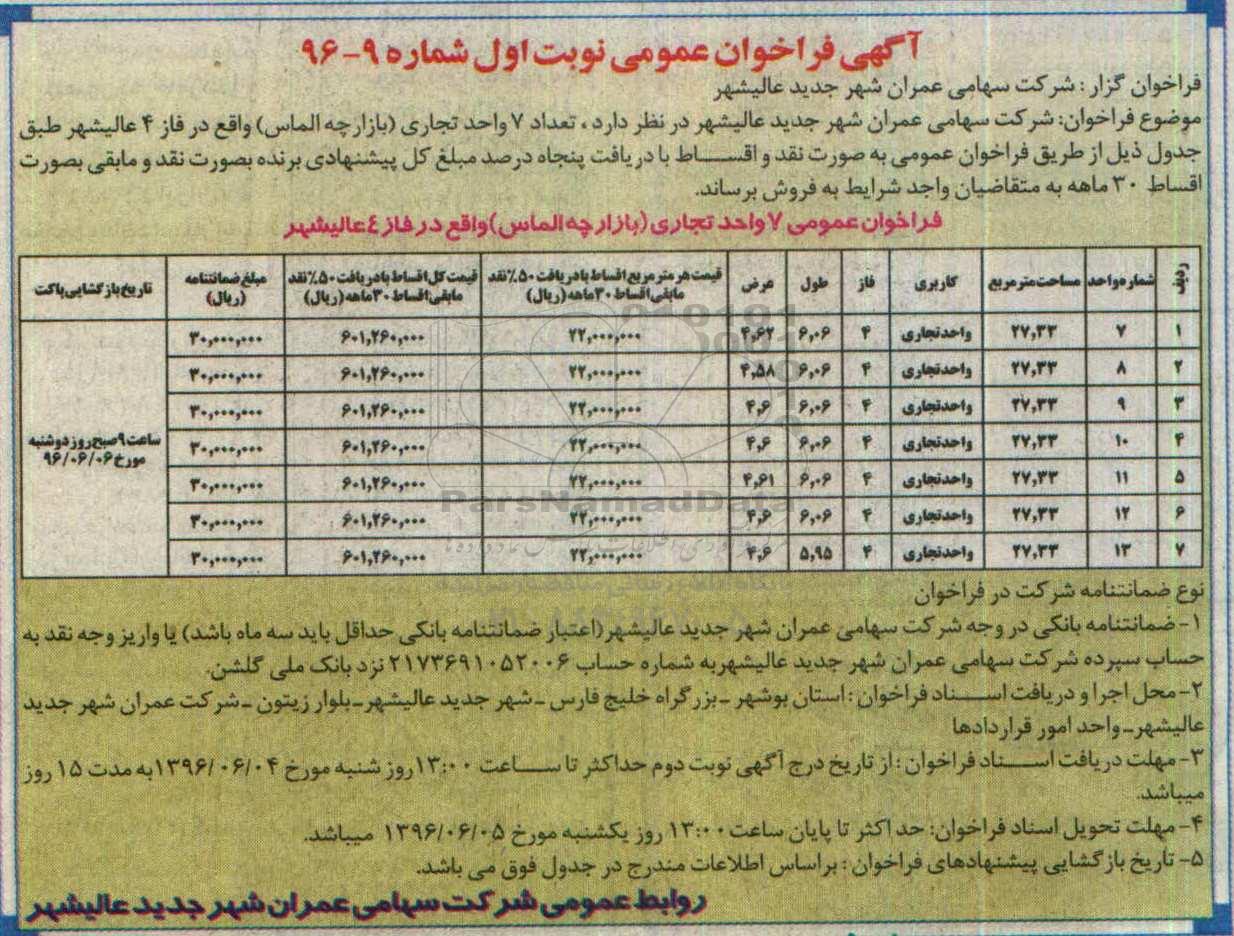 آگهی فراخوان عمومی نوبت اول شماره ۹-۹۶
فراخوان گزار : شرکت سهامی عمران شهر جدید عالیشهر
موضوع فراخوان: شرکت سهامی عمران شهر جدید عالیشهر در نظر دارد ، تعداد ۷ واحد تجاری (بازارچه الماس) واقع در فاز ۴ عالیشهر طبق
جدول ذیل از طریق فراخوان عمومی به صورت نقد و اقساط با دریافت پنجاه درصد مبلغ کل پیشنهادی برنده بصورت نقد و مابقی بصورت
اقساط ۳۰ ماهه به متقاضیان واجد شرایط به فروش برساند.
فراخوان عمومی ۷ واحد تجاری (بازارچه الماس) واقع در فاز ٤ عالیشهر
ردیف شماره واحد مساحت مترمربع کاربری فاز طول عرض قیمت هر متر مربع اقساط با دریافت ۵۰٪ نقد مابقی اقساط ۳۰ ماهه (ریال) قیمت کل اقساط با دریافت ۵۰٪ نقد مابقی اقساط ۳۰ ماهه (ریال) مبلغ ضمانتنامه (ریال) تاریخ بازگشایی پاکت
۱ ۷ ۲۷,۳۳ واحد تجاری ۴ ۶,۰۶ ۴,۶۲ ۲۲,۰۰۰,۰۰۰ ۶۰۱,۲۶۰,۰۰۰ ۳۰,۰۰۰,۰۰۰
۲ ۸ ۲۷,۳۳ واحد تجاری ۴ ۶,۰۶ ۴,۵۸ ۲۲,۰۰۰,۰۰۰ ۶۰۱,۲۶۰,۰۰۰ ۳۰,۰۰۰,۰۰۰
۳ ۹ ۲۷,۳۳ واحد تجاری ۴ ۶,۰۶ ۴,۶ ۲۲,۰۰۰,۰۰۰ ۶۰۱,۲۶۰,۰۰۰ ۳۰,۰۰۰,۰۰۰
۴ ۱۰ ۲۷,۳۳ واحد تجاری ۴ ۶,۰۶ ۴,۶ ۲۲,۰۰۰,۰۰۰ ۶۰۱,۲۶۰,۰۰۰ ۳۰,۰۰۰,۰۰۰ ساعت ۹ صبح روز دوشنبه مورخ ۹۶/۰۶/۰۶
۵ ۱۱ ۲۷,۳۳ واحد تجاری ۴ ۶,۰۶ ۴,۶۱ ۲۲,۰۰۰,۰۰۰ ۶۰۱,۲۶۰,۰۰۰ ۳۰,۰۰۰,۰۰۰
۶ ۱۲ ۲۷,۳۳ واحد تجاری ۴ ۶,۰۶ ۴,۶ ۲۲,۰۰۰,۰۰۰ ۶۰۱,۲۶۰,۰۰۰ ۳۰,۰۰۰,۰۰۰
۷ ۱۳ ۲۷,۳۳ واحد تجاری ۴ ۵,۹۵ ۴,۶ ۲۲,۰۰۰,۰۰۰ ۶۰۱,۲۶۰,۰۰۰ ۳۰,۰۰۰,۰۰۰
ParsNamadData
نوع ضمانتنامه شرکت در فراخوان
۱- ضمانتنامه بانکی در وجه شرکت سهامی عمران شهر جدید عالیشهر (اعتبار ضمانتنامه بانکی حداقل باید سه ماه باشد) یا واریز وجه نقد به
حساب سپرده شرکت سهامی عمران شهر جدید عالیشهر به شماره حساب ۲۱۷۳۶۹۱۰۵۲۰۰۶ نزد بانک ملی گلشن.
۲- محل اجرا و دریافت اسناد فراخوان : استان بوشهر - بزرگراه خلیج فارس - شهر جدید عالیشهر - بلوار زیتون - شرکت عمران شهر جدید
عالیشهر- واحد امور قراردادها
۳- مهلت دریافت اسناد فراخوان : از تاریخ درج آگهی نوبت دوم حداکثر تا ساعت ۱۳:۰۰ روز شنبه مورخ ۱۳۹۶/۰۶/۰۴ به مدت ۱۵ روز
میباشد.
۴- مهلت تحویل اسناد فراخوان: حداکثر تا پایان ساعت ۱۳:۰۰ روز یکشنبه مورخ ۱۳۹۶/۰۶/۰۵ میباشد.
۵- تاریخ بازگشایی پیشنهادهای فراخوان : براساس اطلاعات مندرج در جدول فوق می باشد.
روابط عمومی شرکت سهامی عمران شهر جدید عالیشهر